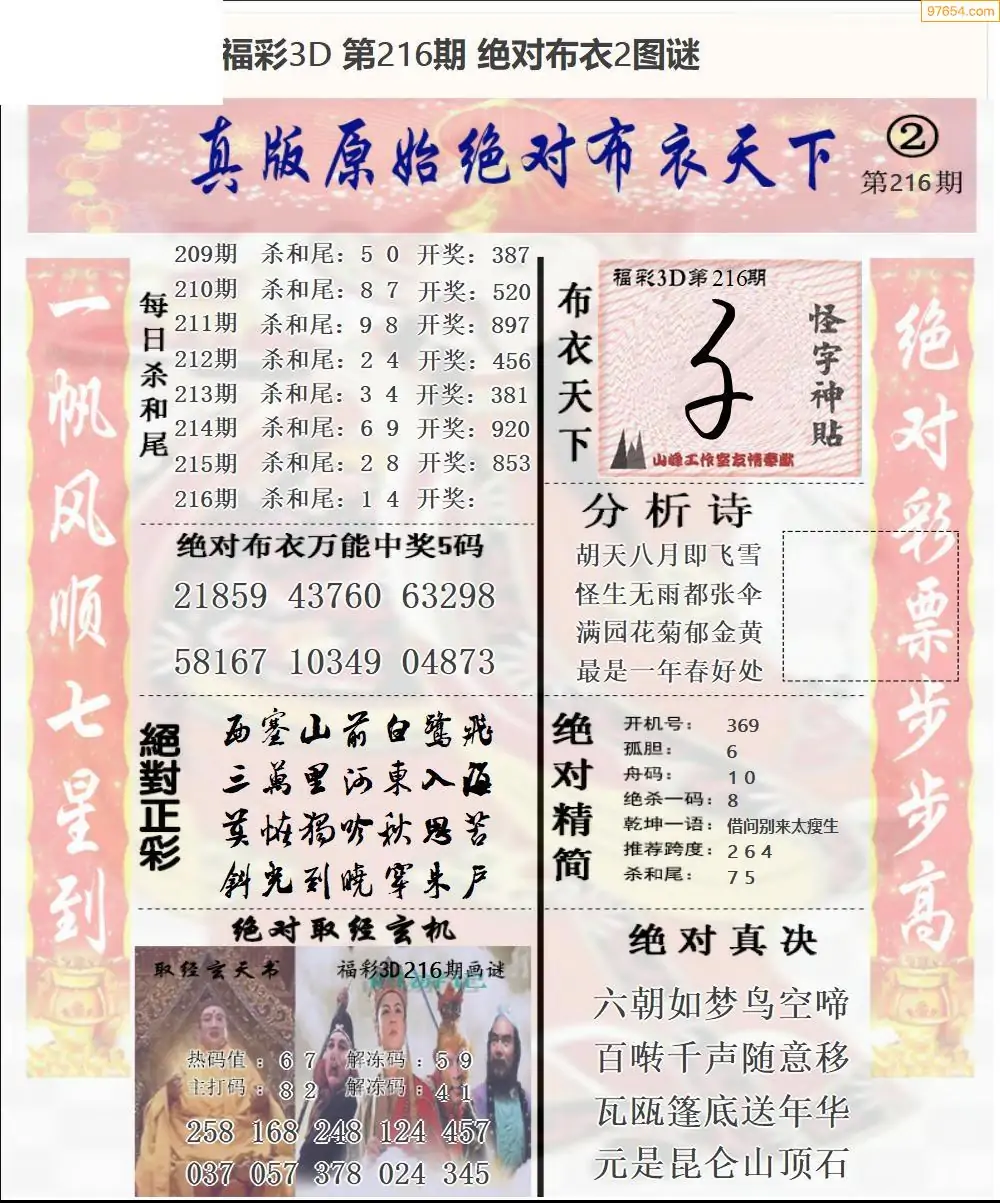 97654.com
福彩3D 第216期 绝对布衣2图谜
真版原始绝对布衣天下
②
第216期
一帆风顺七星到
每日杀和尾
209期 杀和尾：5 0 开奖：387
210期 杀和尾：8 7 开奖：520
211期 杀和尾：9 8 开奖：897
212期 杀和尾：2 4 开奖：456
213期 杀和尾：3 4 开奖：381
214期 杀和尾：6 9 开奖：920
215期 杀和尾：2 8 开奖：853
216期 杀和尾：1 4 开奖：
布衣天下
福彩3D第216期
怪字神贴
山峰工作室友情奉献
绝对彩票步步高
绝对布衣万能中奖5码
21859 43760 63298
58167 10349 04873
分析诗
胡天八月即飞雪
怪生无雨都张伞
满园花菊郁金黄
最是一年春好处
絕對正彩
西塞山前白鹭飛
三萬里河東入海
莫怪獨吟秋思苦
斜光到曉穿朱戶
绝对精简
开机号： 369
孤胆： 6
舟码： 1 0
绝杀一码： 8
乾坤一语： 借问别来太瘦生
推荐跨度： 2 6 4
杀和尾： 7 5
绝对取经玄机
取经玄天书
福彩3D216期画谜
热码值：6 7 解冻码：5 9
主打码：8 2 解冻码：4 1
258 168 248 124 457
037 057 378 024 345
绝对真决
六朝如梦鸟空啼
百啭千声随意移
瓦瓯篷底送年华
元是昆仑山顶石